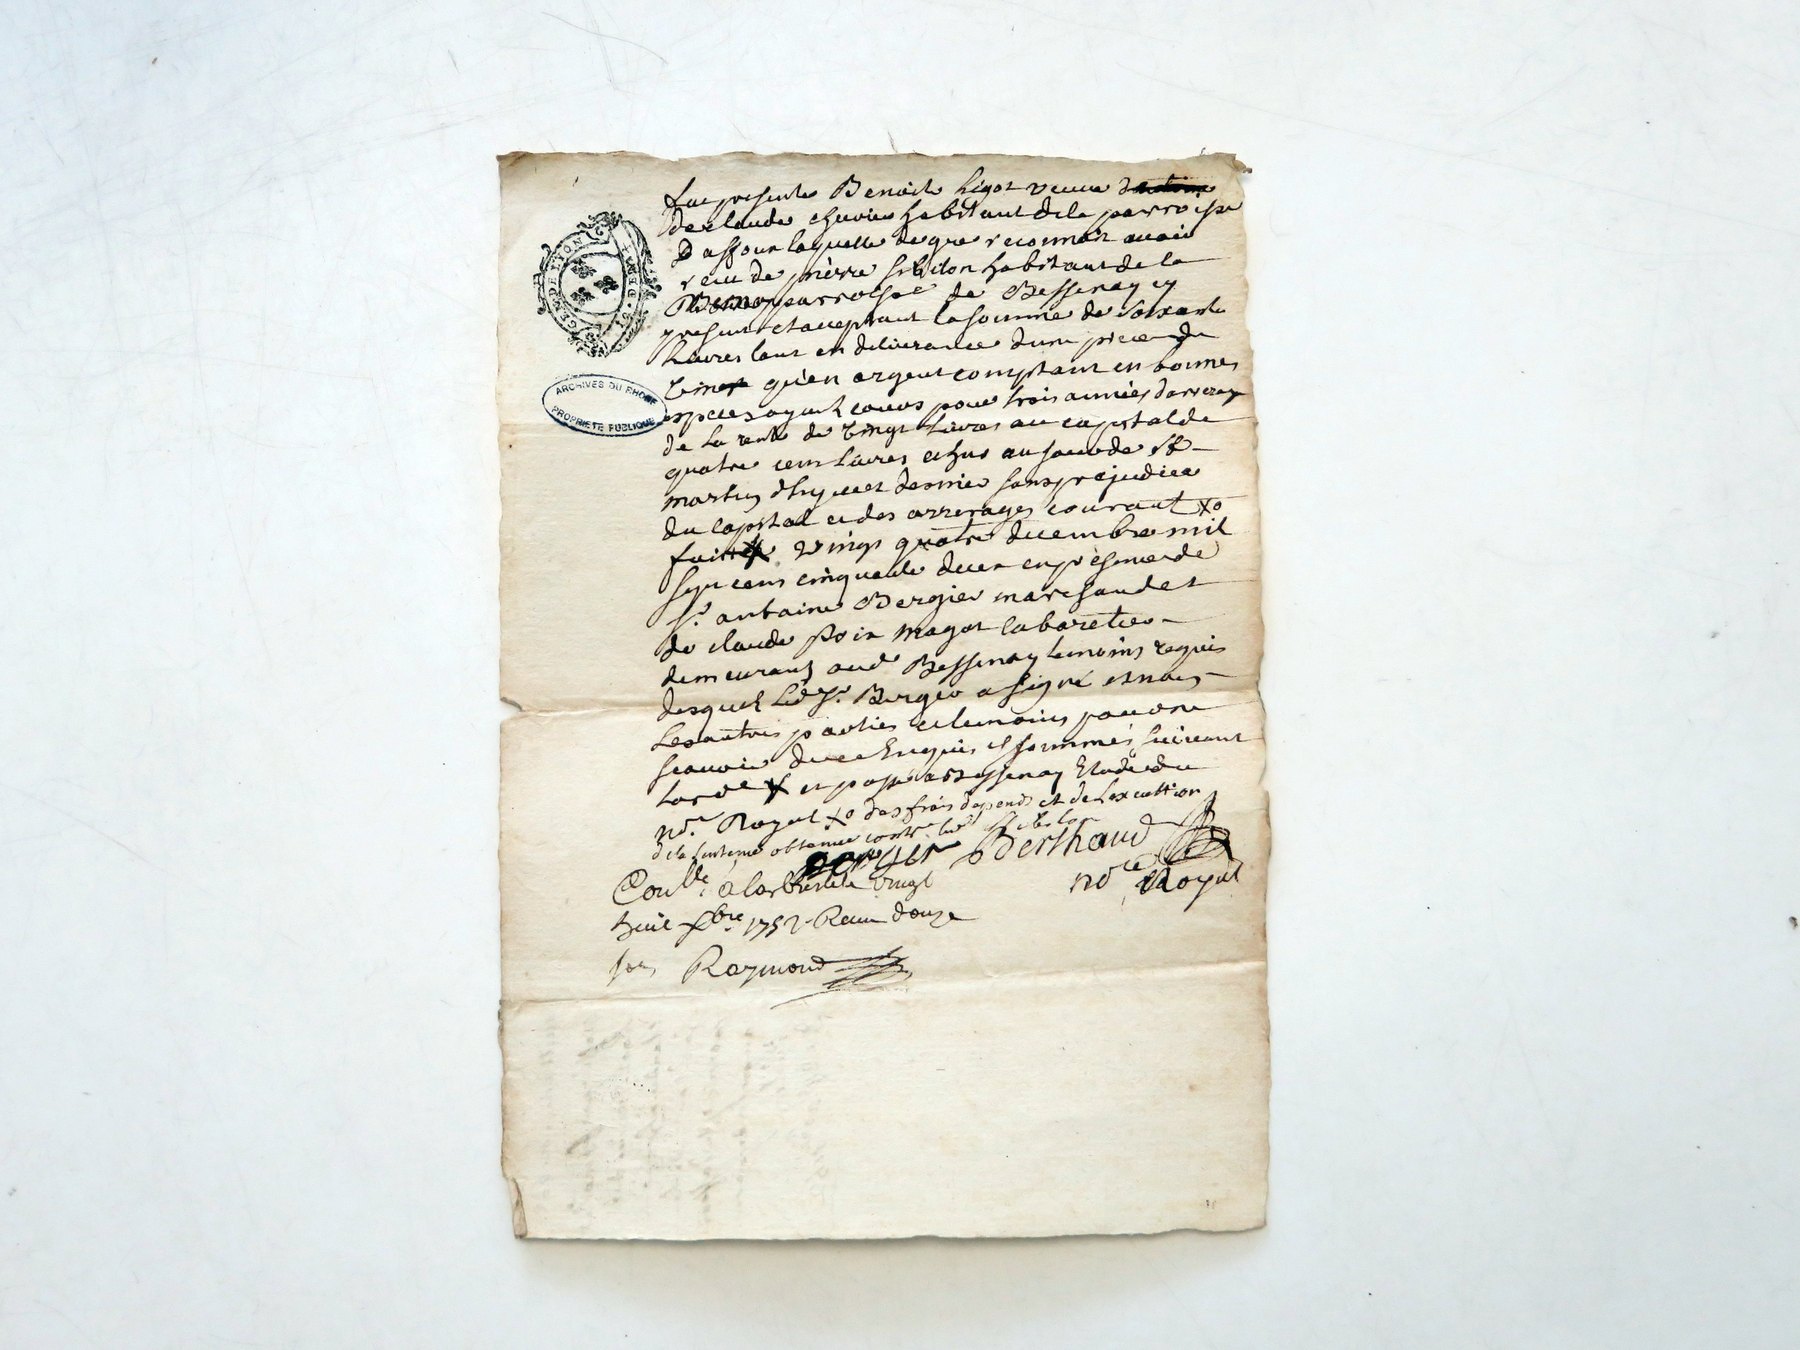 GEN. DE LYON
ARCHIVES DU RHONE
PROPRIETE PUBLIQUE
fut presente Benoite Pigot veuve
de Claude habitant de la parroisse
Dassou laquelle de gre reconnoit avoir
receu de pierre habitant de la
parroisse de Bessenay cy
present et acceptant la somme de soixante
livres tant en delivrance dune piece de
qu'en argent comptant en bonnes
especes ayant cours pour trois années darrerage
de la rente de vingt livres au capital de
quatre cens livres echus au jour de st
martin dhyver dernier sans prejudice
du capital et des arrerages courant xo
fait vingt quatre decembre mil
sept cens cinquante deux en presence de
sr. antoine Bergier marchand et
de claude poix magot cabaretier
demeurant aud Bessenay temoins requis
desquels led sr. Bergier a signé et non
les autres parties et temoins pour ne
scavoir de ce enquis et sommés suivant
lord.e x et passé a Bessenay Etude du
nore. Royal xo des frais depends et de lexecution
de la sentence obtenue contre led
Bergier Berthaud
nore Royal
Conllé. a larbresle le vingt
huit xbre. 1752 Receu douze
sols Raymond